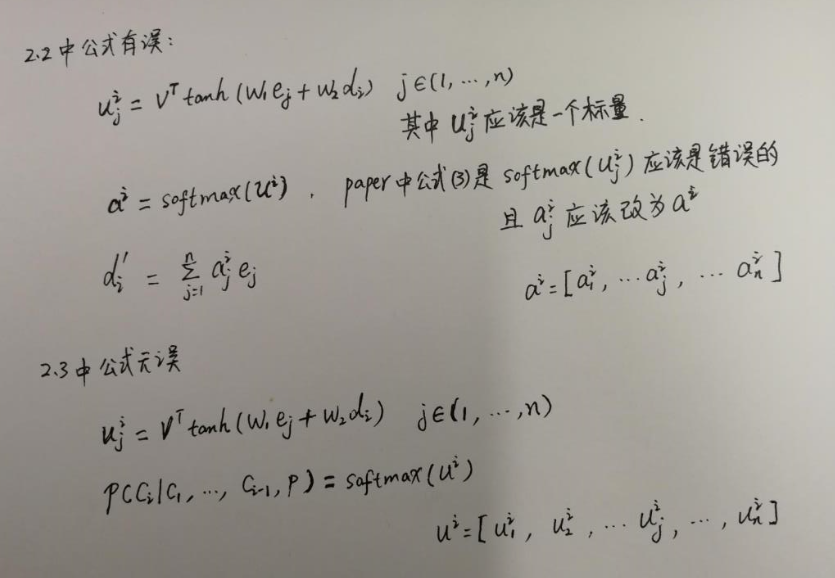 2.2中公式有误:
u_j^i = V^T tanh(W_1 e_j + W_2 d_i) j∈(1, ..., n)
其中 u_j^i 应该是一个标量.
a^i = softmax(u^i) , paper中公式(3)是 softmax(u_j^i) 应该是错误的
且 a_j^i 应该改为 a^i
d_i' = ∑_{j=1}^{n} a_j^i e_j
a^i = [a_1^i, ... a_j^i, ... a_n^i]
2.3中公式无误
u_j^i = V^T tanh(W_1 e_j + W_2 d_i) j∈(1, ..., n)
p(C_i|C_1, ..., C_{i-1}, P) = softmax(u^i)
u^i = [u_1^i, u_2^i, ... u_j^i, ..., u_n^i]